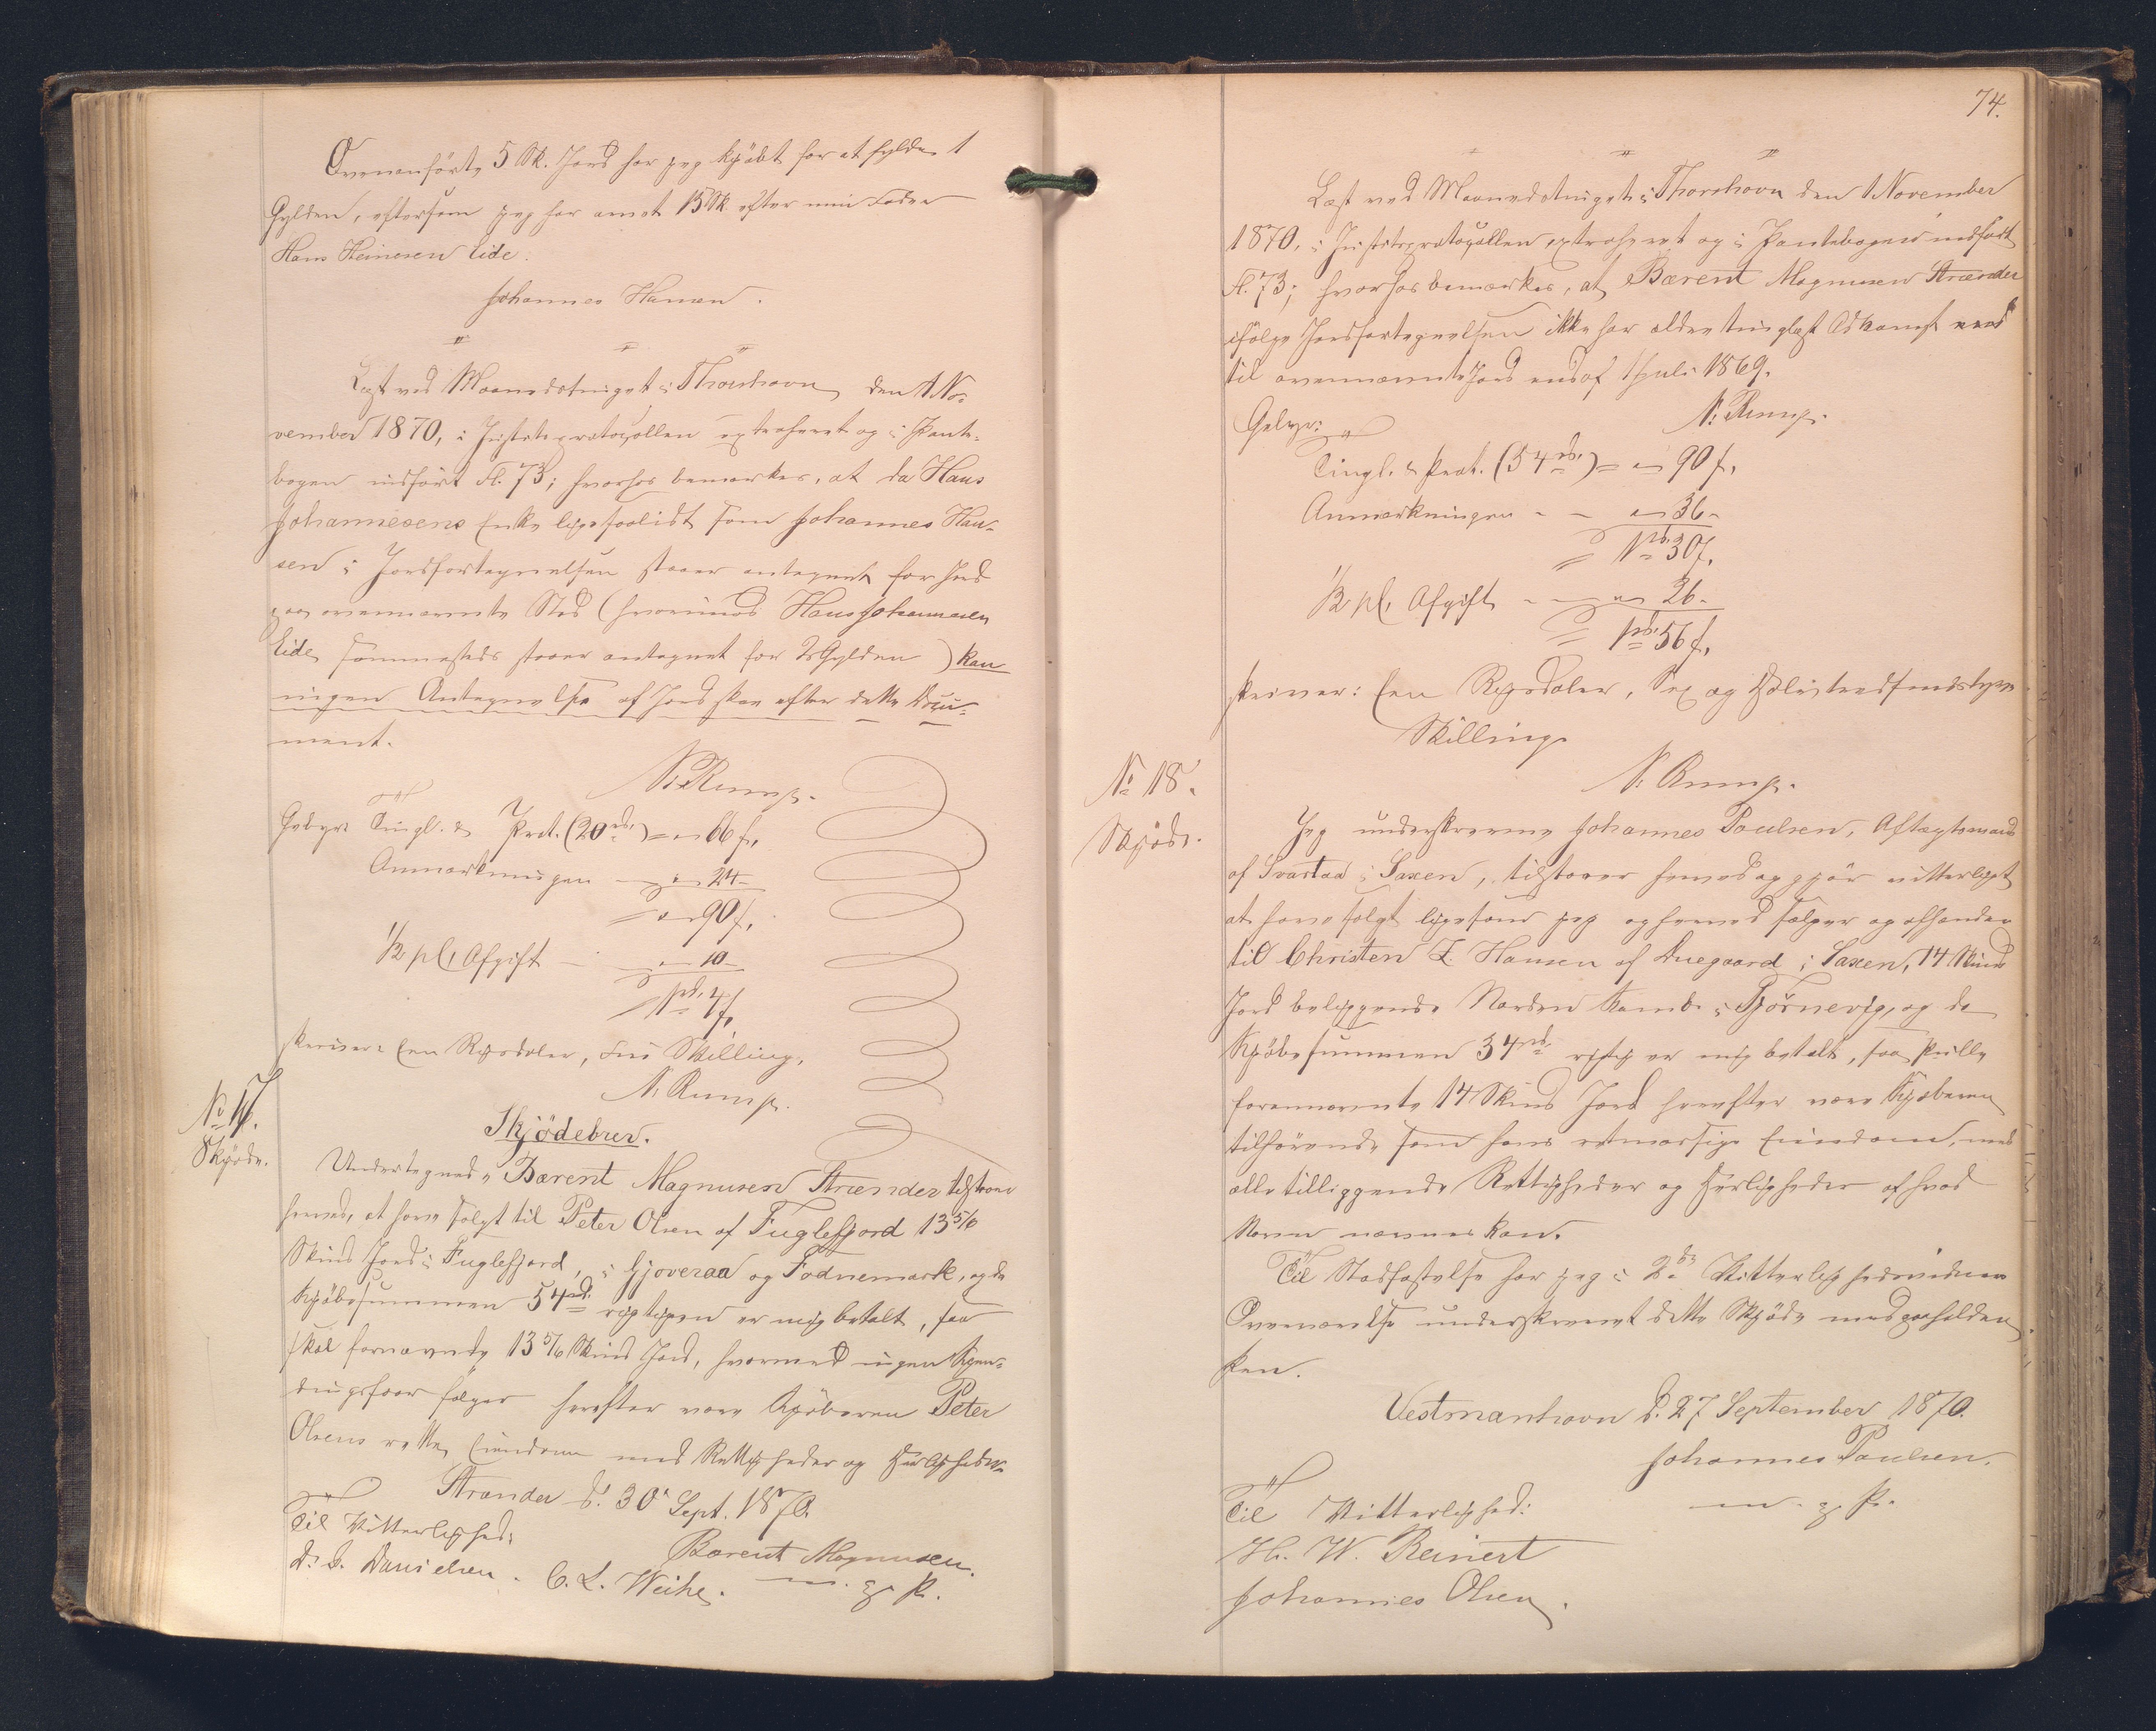 Ovenanførte 5 Sk. Jord har jeg kjøbt for at fylde 1
Gylden, eftersom jeg har arvet 15 Sk efter min Fader
Hans Heinesen Eide.
Johannes Hansen.
Læst ved Maanedstinget i Thorshavn den 1 No-
vember 1870, i Justitsprotocollen extraheret og i Pante-
bogen indført Fl. 73; hvorhos bemærkes, at da Hans
Johannesens Enke ligesaalidt som Johannes Han-
sen i Jordfortegnelsen staaer antegnet for Jord
paa ovennævnte Sted (hvorimod Hans Johannesen
Eide sammesteds staaer antegnet for 2 Gylden) kan
ingen Antegnelse af Jord skee efter dette Docu-
ment.
N. Rump.
Gebyr: Tingl. & Prot. (20 rd.) = " 66 f.
Anmærkningen " 24 -
" 90 f.
1/2 pCt Afgift - " 10 -
1 rd. 4 f.
skriver: Een Rigsdaler, fire Skilling.
N. Rump.
No 17.
Skjøde.
Skjödebrev.
Undertegnede Bærent Magnusen Strænder tilstaaer
herved, at have solgt til Peter Olsen af Fuglefjord 13 5/6
Skind Jord i Fuglefjord, i Gjoveraa og Fodnemark, og da
Kjöbesummen 54 rd. rigtigen er mig betalt, saa
skal fornævnte 13 5/6 Skind Jord, hvormed ingen Kjen-
dingsfaar følger herefter være Kjöberen Peter
Olsens rette Eiendom med Rettigheder og Herligheder
Strænder d. 30 Sept. 1870.
Til Vitterlighed:
Bærent Magnusen.
D. D. Danielsen. C. L. Weihe. m. g. P.
74.
Læst ved Maanedstinget i Thorshavn den 1 November
1870, i Justitsprotocollen extraheret og i Pantebogen indført
Fl. 73; hvorhos bemærkes, at Bærent Magnusen Strænder
ifølge Jordfortegnelsen ikke har ældre tinglæst Adkomst
til ovennævnte Jord end af 1 Juli 1869.
N. Rump.
Gebyr:
Tingl. & Prot. (54 rd.) = " 90 f.
Anmærkningen - - " 36 -
1 rd. 30 f.
1/2 pCt. Afgift - " 26 -
1 rd. 56 f.
skriver: Een Rigsdaler, Sex og Halvtredsindstyve
Skilling
N. Rump.
No 18.
Skjøde.
Jeg underskrevne Johannes Poulsen, Aftægtsmand
af Svartaa i Saxen, tilstaaer herved og gjør vitterligt
at have solgt ligesom jeg og herved sælger og afhænder
til Christen Z. Hansen af Duegaard i Saxen, 14 Skind
Jord beliggende Norden Kamb i Tjørnevig, og da
Kjøbesummen 34 rd. rigtig er mig betalt, saa skulle
forennævnte 14 Skind Jord herefter være Kjøberen
tilhørende som hans retmæssige Eiendom, med
alle tilliggende Rettigheder og Herligheder af hvad
Navn nævnes kan.
Til Stadfæstelse har jeg i 2de Vitterlighedsvidners
Overværelse underskrevet dette Skjøde med paaholden
Pen.
Vestmanhavn d. 27 September 1870.
Johannes Poulsen.
m. g. P.
Til Vitterlighed:
H. W. Reinert
Johannes Olsen.